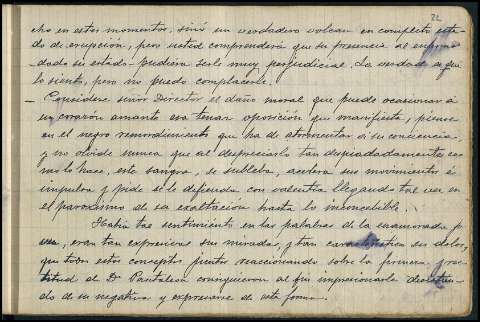 22
cho en estos momentos, sinó un verdadero volcan en completo esta-
do de erupcion, pero usted comprenderá que su presencia al enfermo
dado su estado pudiera serle muy perjudicial. La verdad es que
lo siento, pero no puedo complacerle.
— Considere señor Director el daño moral que puede ocasionar á
un corazón amante esa tenaz oposición que manifiesta, piense
en el negro remordimiento que ha de atormentar á su conciencia
y no olvide nunca que al despreciarlo tan despiadadamente co-
mo lo hace, esta sangre, se subleba, acelera sus movimientos é
impulsos y pide se le defienda con valentia llegando tal vez en
el paroxismo de su exaltación hasta lo inconcebible.
Habia tal sentimiento en las palabras de la enamorada
eran tan expresivas sus miradas, y tan característica su dolor,
que todos estos conceptos juntos reaccionando sobre la primera
titud al Dr Pantaleon consiguieron al fin impresionarle desistien-
do de su negativa y expresarse de esta forma.